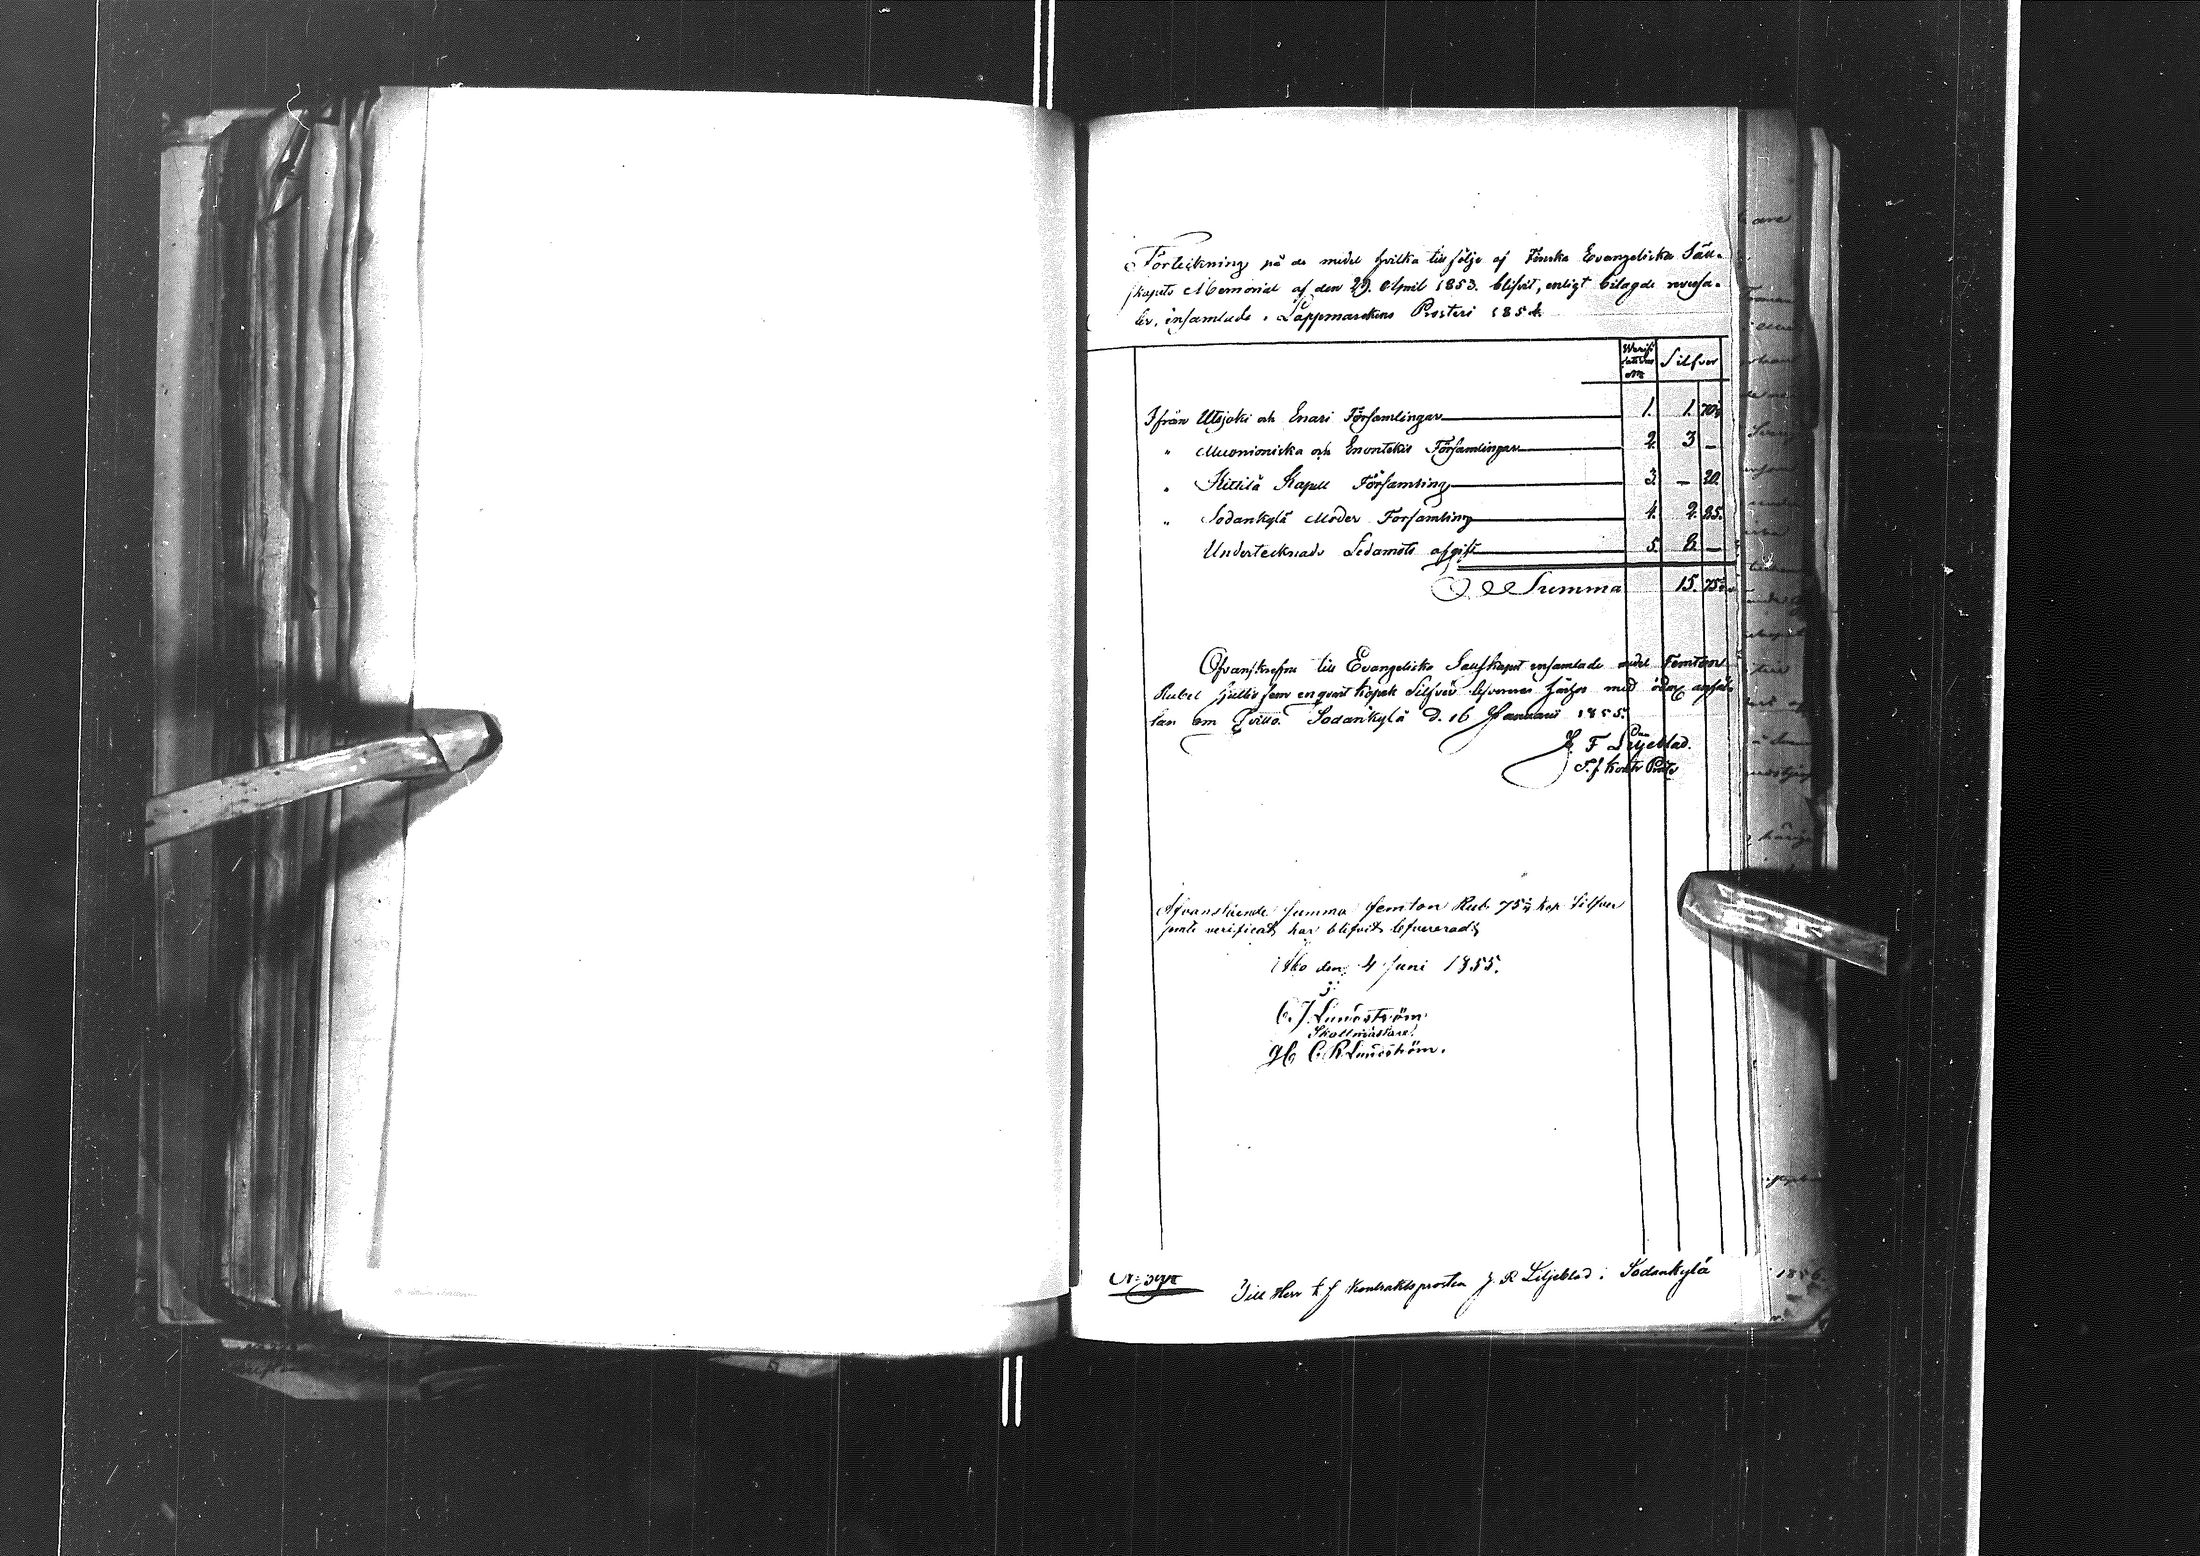 Förteckning på de medel hvilka till följe af Finska Evangeliska Säll-
skapets Memorial af den 29. April 1853. blifvit, enligt bilagde reversa-
ler, insamlade i Lappmarkens Prosteri 1854.
Verifi
cations
No Silfver
Ifrån Utsjoki och Enari Församlingar 1. 1. 70½
" Muonioniska och Enontekis Församlingar 2. 3 —
" Kittilä Kapell Församling 3. — 20.
" Sodankylä Moder Forsamling 4. 2. 85.
Undertecknads Ledamots afgift 5. 8. —
Summa 15. 75½
Ofvanskrefne till Evangeliska Sällskapet insamlade medel Femton
Rubel sjuttio fem en qvart kopek Silfver lefvereras härhos med ödmj. anhål-
lan om Qvitto. Sodankylä d. 16 Januari 1855.
J F Liljeblad.
T. f. Kontr. Prost
Ofvanstående summa femton Rub. 75½ kop. Silfver
jemte verificat, har blifvit lefvererad;
Åbo den 4 Juni 1855.
C. J. Lindström.
Skattmästare.
gm C. R. Lindström.
Till Herr t f Kontraktsprosten J. R Liljeblad i Sodankylä
1856.